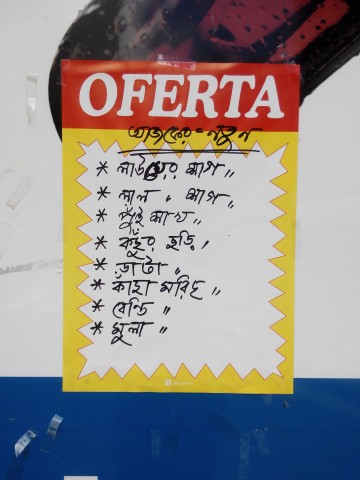 OFERTA
আজকের = নতুন
* লাউয়ের শাগ "
* লাল " শাগ "
* পুঁই শাখ "
* কচুর ছড়ি "
* ডাটা "
* কাঁচা মরিচ "
* বেন্ডি "
* মুলা "